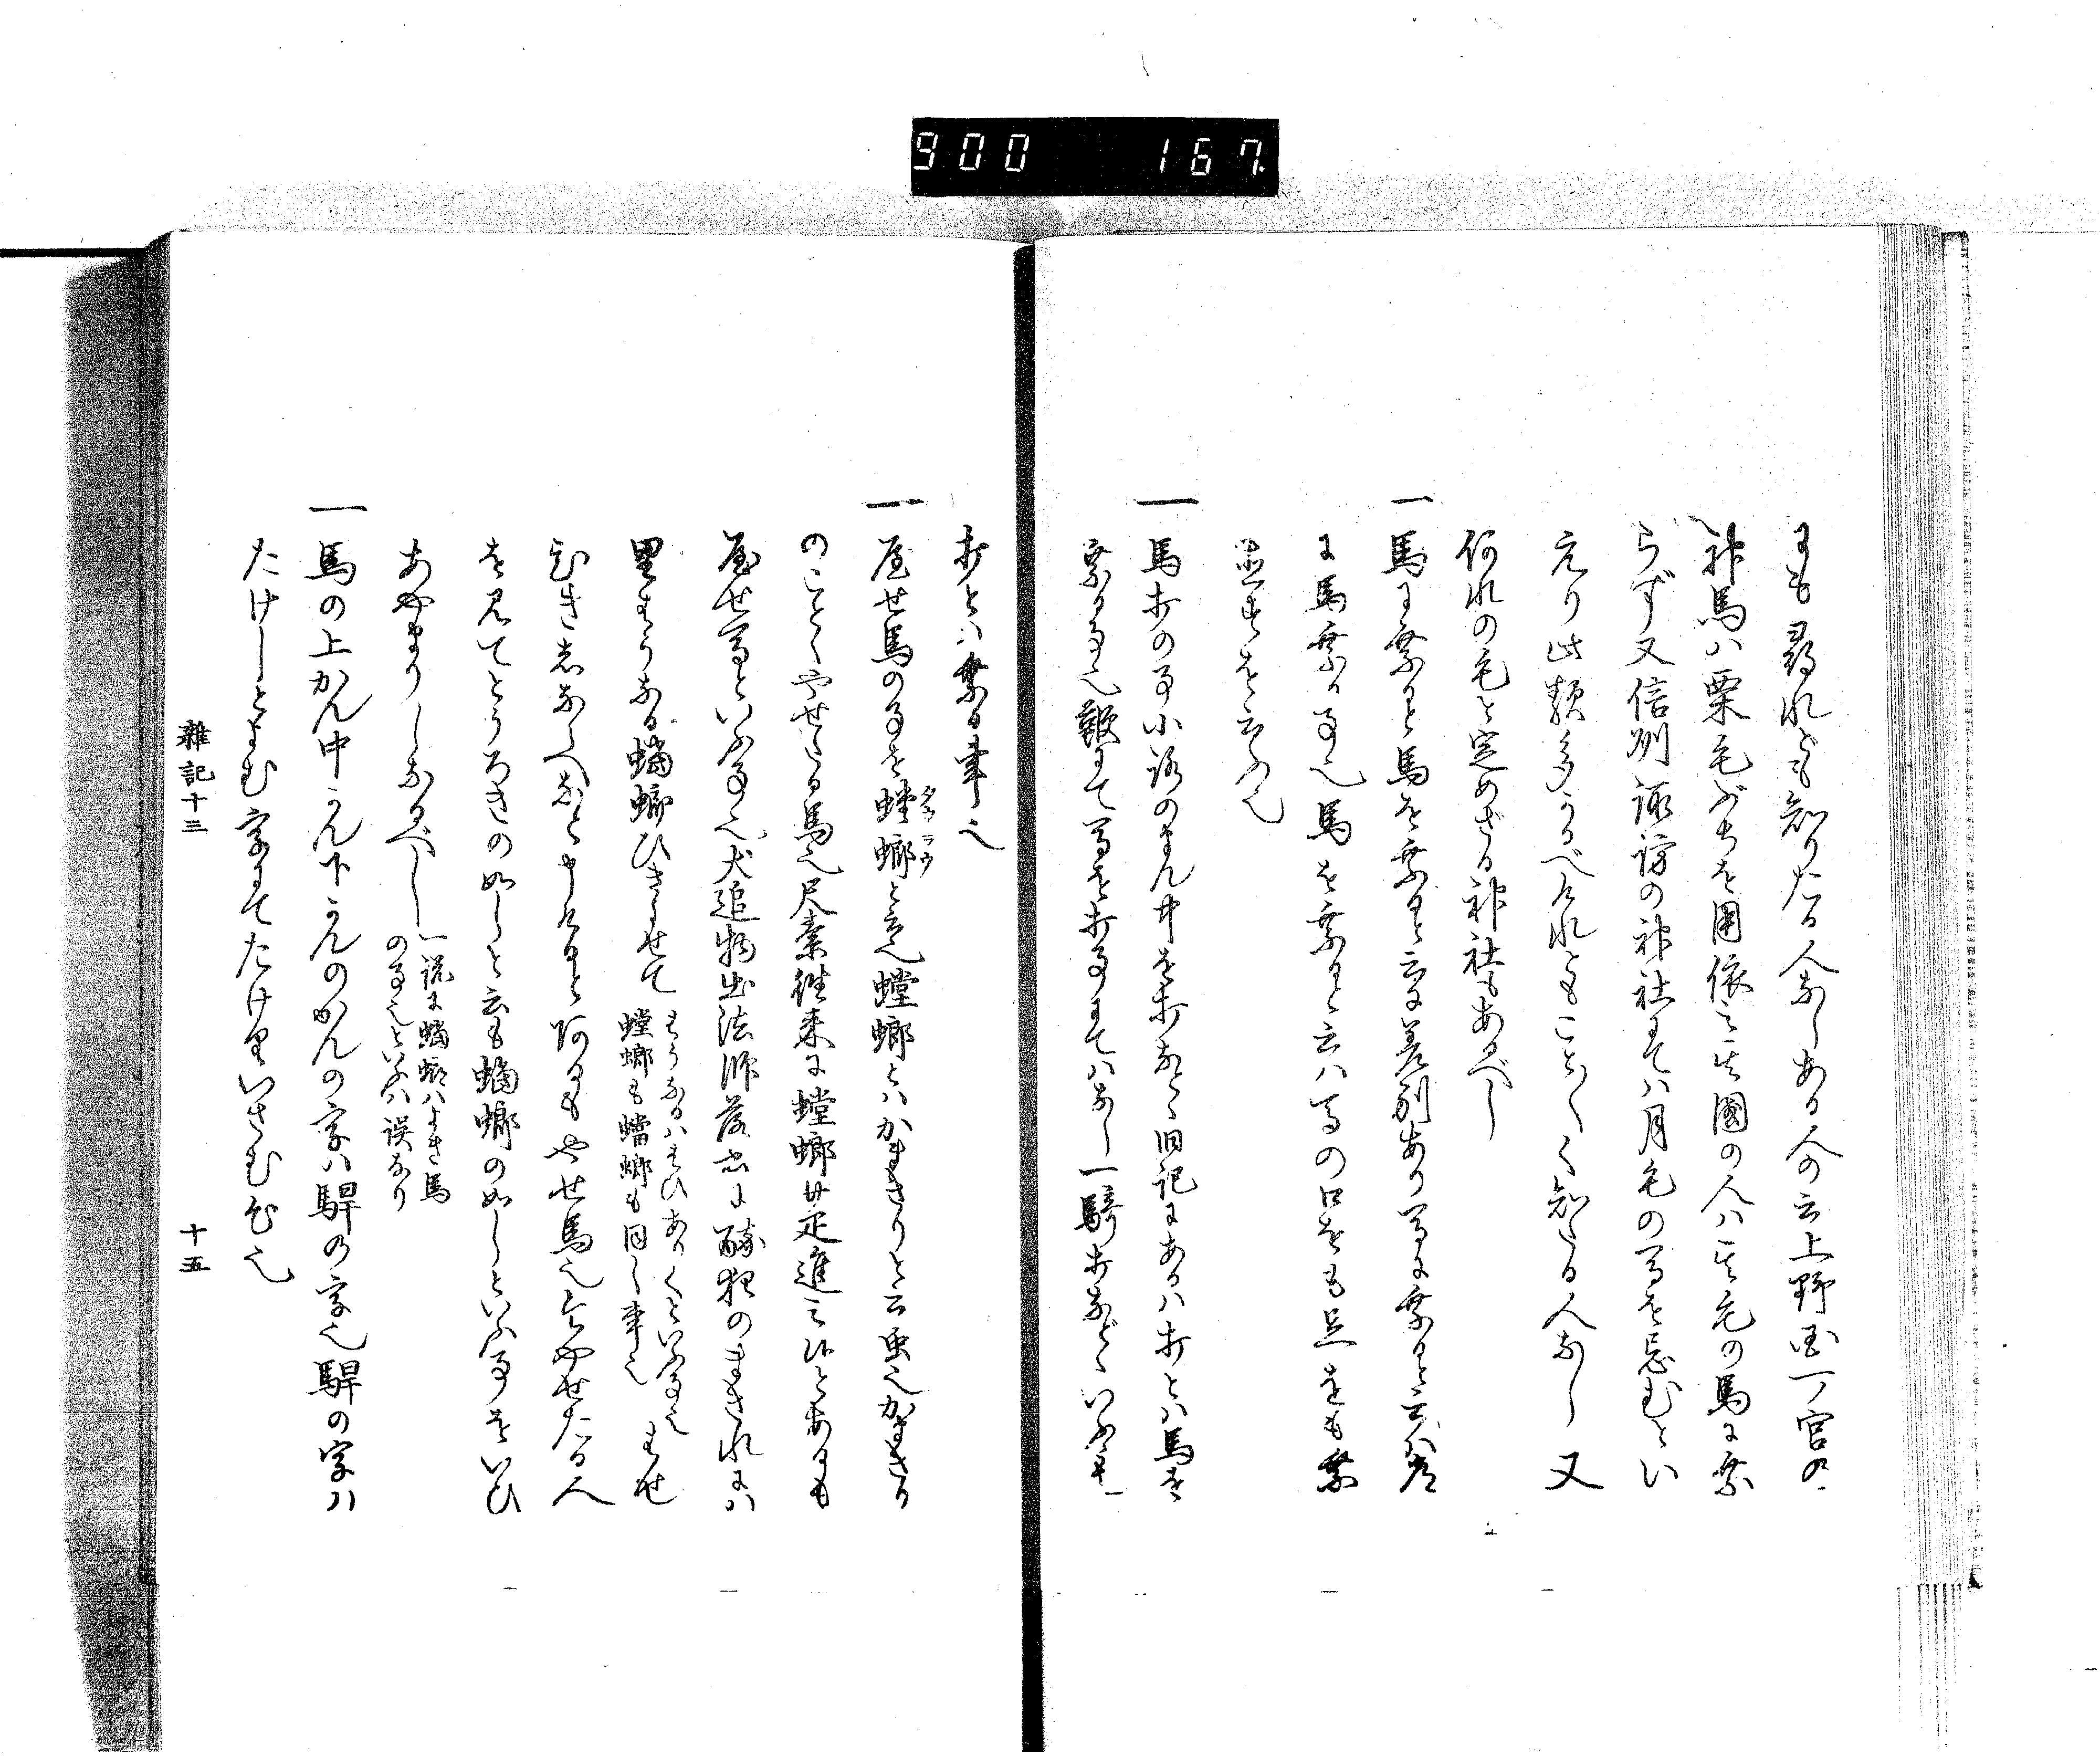 900 167
にも尋れども知りたる人なしある人の云上野国一宮の
神馬ハ栗毛ぶちを用依之其國の人ハ其毛の馬に乗
らず又信州諏訪の神社にてハ月毛の馬を忌むとい
えり此類多かるべけれどもことごとく知たる人なし又
何れの毛と定めざる神社もあるべし
一馬に乗ると馬を乗ると云に差別あり馬に乗ると云ハ常
に馬乗る事也馬を乗ると云ハ馬の口をも足をも乗
を云ふ也
一馬打の事小路のまん中を打などゝ旧記にあるハ打とハ馬を
乗る事也鞭にて馬を打事にてハなし一騎打などゝいふも
打とハ乗る事也
一屋せ馬の事を螳螂と云也螳螂とハかまきりと云虫也かまきり
タウラウ
のことくやせたる馬也尺素往来に螳螂廿疋進之候とあるも
屋せ馬といふ事也犬追物出法師落書に酥狸のまきれにハ
里をうなる蟷螂ひきよせて
螳螂も蟷螂も同し事也
やせ馬也又やせたる人
を見てとうろきの如しと云も蟷螂の如しといふ事をいひ
あやまりしなるべし
一説に蟷螂ハよき馬
の事也といふハ誤なり
一馬の上かん中かん下かんのかんの字ハ駻の字也駻の字ハ
たけしとよむ字にてたけりいさむ心也
雜記十三
十五